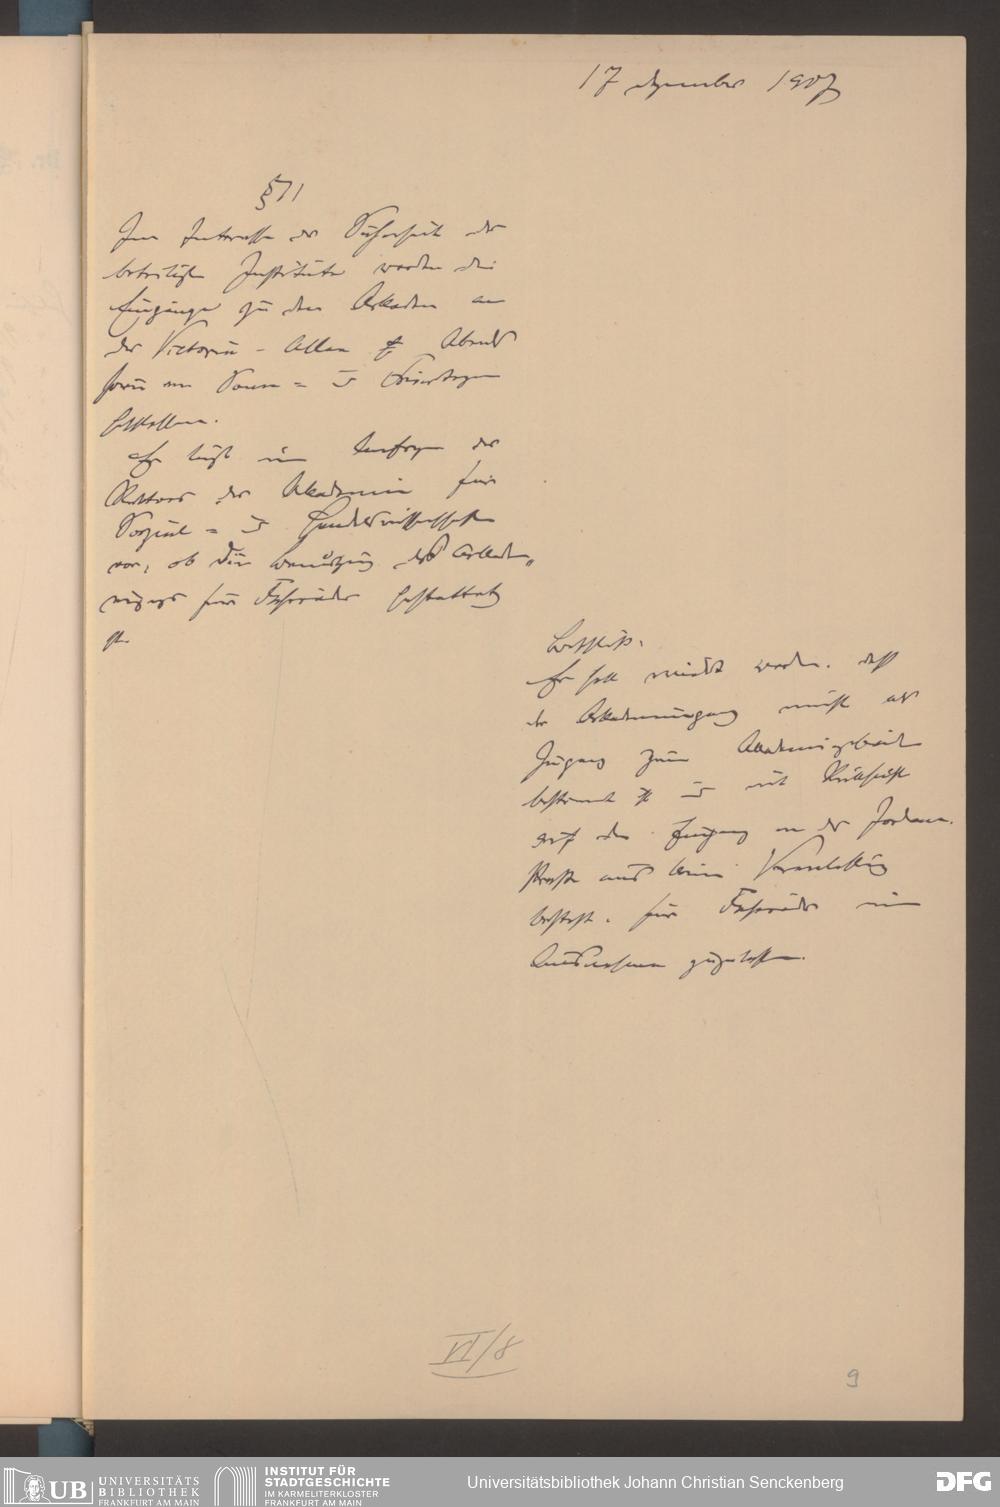 17 Dezember 1907
§ 71
Im Interesse der Sicherheit der
beteiligten Institute werden die
Eingänge zu den Arkaden an
der Victoria-Allee Abends
sowie an Sonn= u Feiertagen
geschlossen.
Es liegt ein Anfrage des
Rektors der Akademie für
Sozial= u Handelswissenschaften
vor, ob die Benutzung des Arkaden„
ganges für Fahrräder gestattet
ist.
Beschluss.
Es soll erwidert werden, dass
der Arkadengang nicht als
Zugang zum Akademiegebäude
bestimmt ist u mit Rücksicht
auf den Eingang an der Jordan-
Strasse auch keine Veranlassung
besteht, für Fahrräder eine
Ausnahme zuzulassen.
VI/8
9
UB UNIVERSITÄTS
BIBLIOTHEK
FRANKFURT AM MAIN
INSTITUT FÜR
STADTGESCHICHTE
IM KARMELITERKLOSTER
FRANKFURT AM MAIN
Universitätsbibliothek Johann Christian Senckenberg
DFG